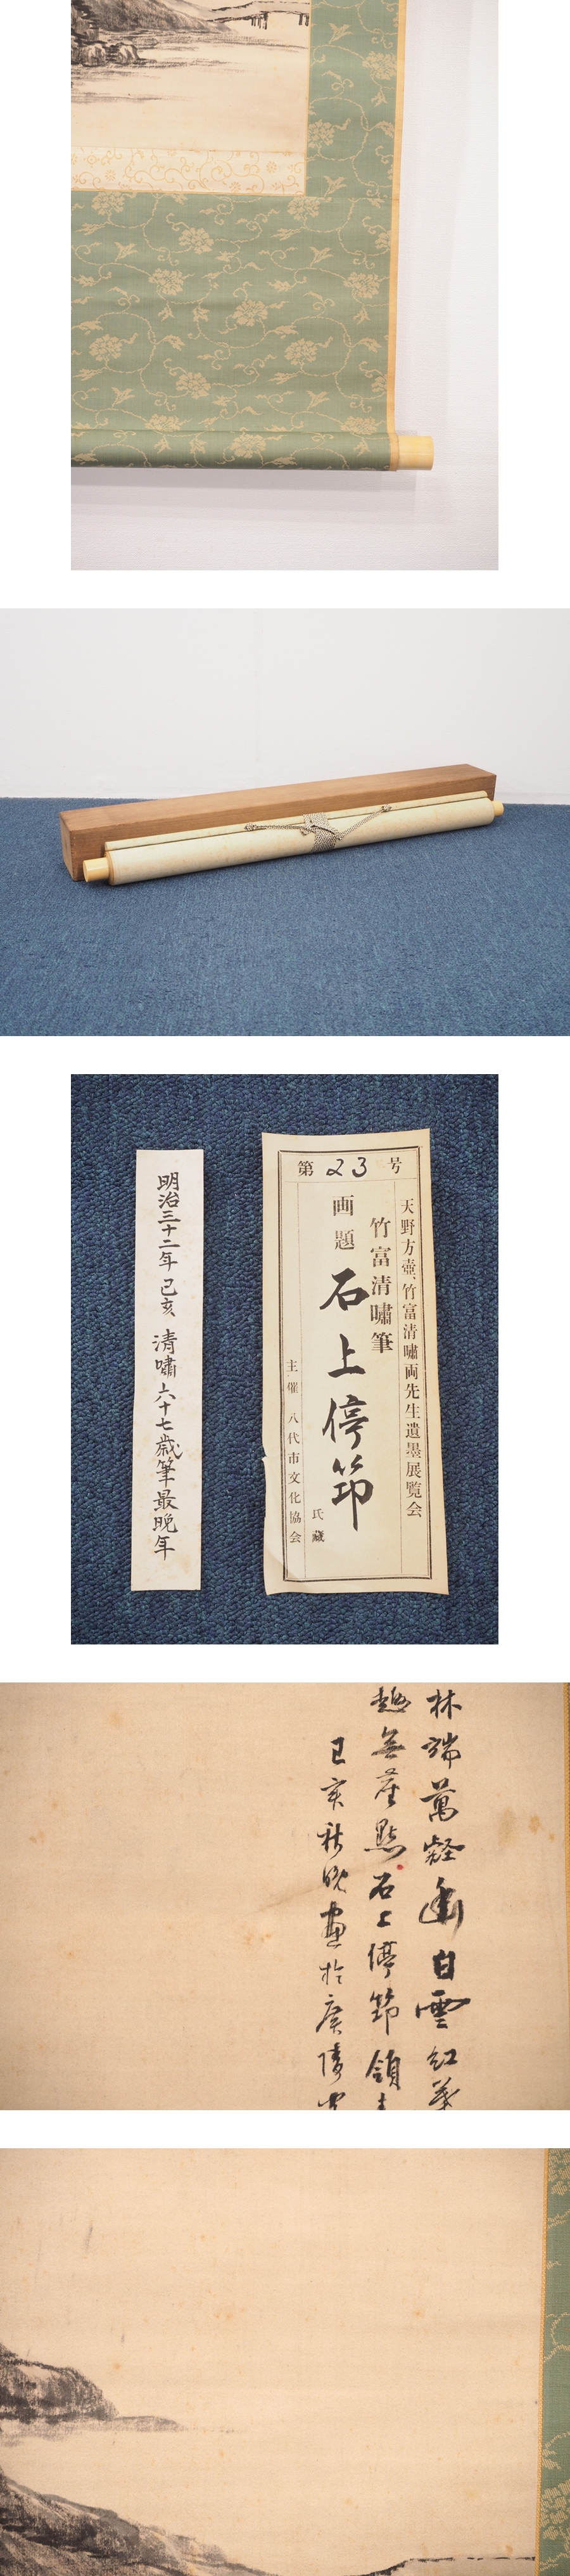 明治三十二年 己亥 清嘯六十七歳筆最晩年
第23号
天野方壺、竹富清嘯両先生遺墨展覧会
竹富清嘯筆
画題 石上停筇
氏蔵
主催 八代市文化協会
林端萬壑白雲紅葉
趣無点石上停筇領
己亥秋晩画於葵陵